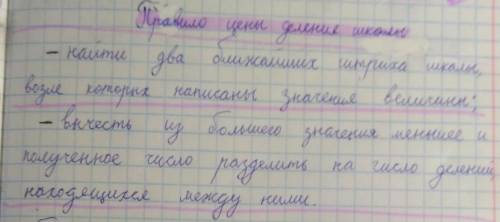 Правило цены деления шкалы
– найти два ближайших штриха шкалы,
возле которых написаны значения величины;
– вычесть из большего значения меньшее и
полученное число разделить на число делений
находящихся между ними.